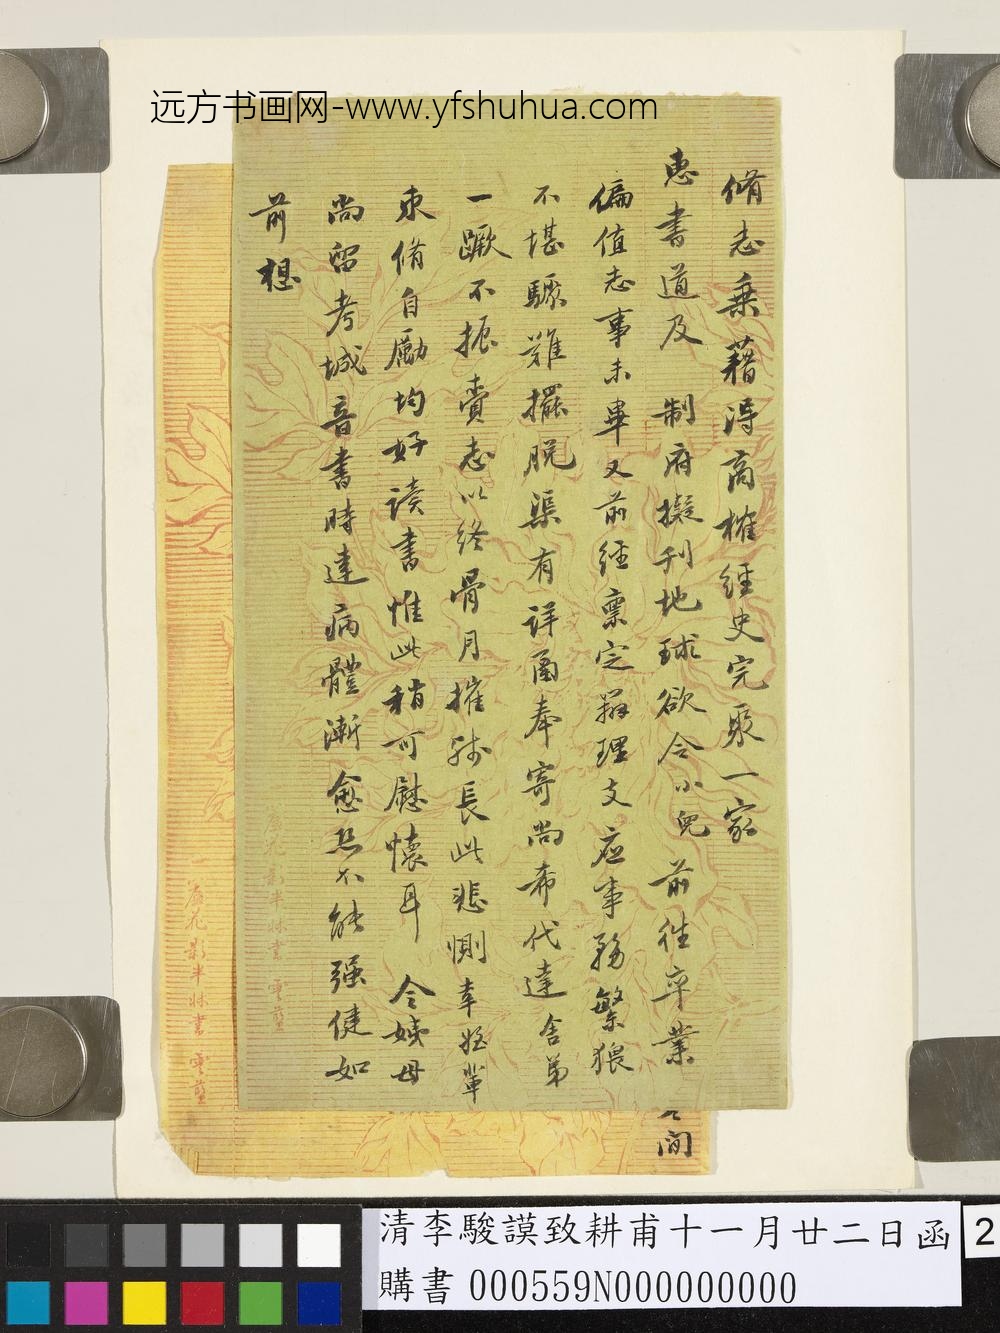 远方书画网-www.yfshuhua.com
脩志乘藉得商榷經史完聚一家
惠書道及 制府擬刊地球欲令小兒前往卒業
偏值志事未畢又前經稟定辦理支应事務繁猥
不堪驟難擺脱渠有詳函奉寄尚希代達舍弟
一蹶不振賫志以终骨月摧殘長此悲惻幸姪輩
束脩自勵均好读書惟此稍可慰懷耳 令嫂母
尚留考城音書時達病體漸愈然不能强健如
前想
間
一簾花影半牀書 雲藍
一簾花影半牀書 雲藍
清李駿謨致耕甫十一月廿二日函
購書 000559N000000000
2